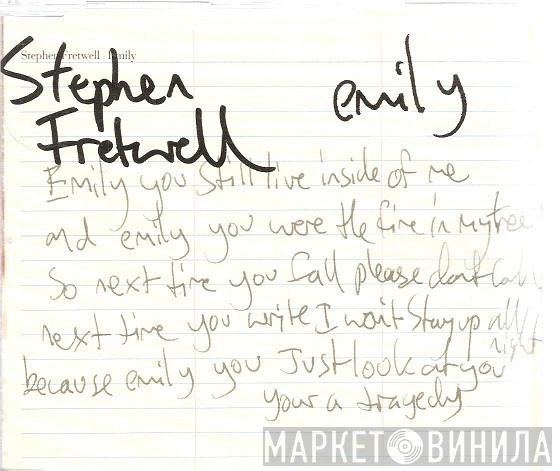 Stephen Fretwell Emily
Stephen emily
Fretwell
Emily you still live inside of me
and emily you were the fire in my tree
So next time you fall please dont call
next time you write I won't stay up all
night
because emily you Just look at you
your a tragedy
МАРКЕТ ВИНИЛА